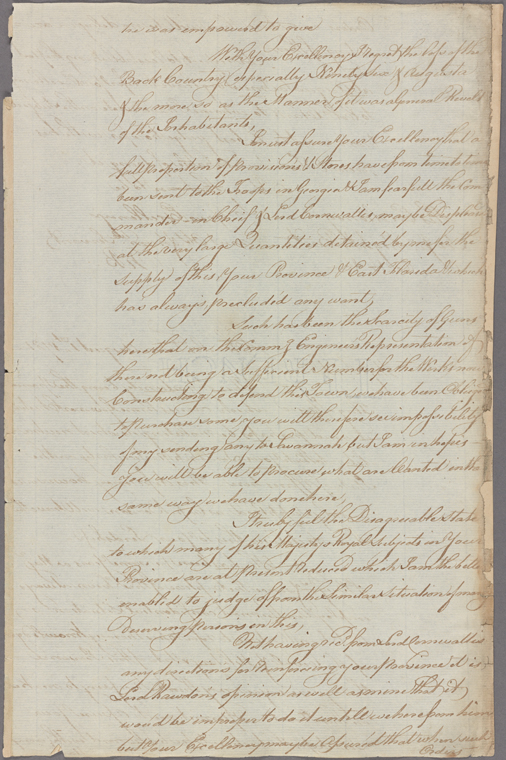 he was empowered to give
With Your Excellency I regret the loss of the
Back Country (especially Ninety Six & Augusta
& the more so as the Manner of it was a general Revolt
of the Inhabitants,
I must assure Your Excellency that a
full proportion of provisions & Stores have from time to time
been sent to the Troops in Georgia & I am fearfull the Com
mander in Chief & Lord Cornwallis may be Displeased
at the very large Quantities detained by me for the
supply of this & Your Province & East Florida & which
has always precluded any want,
Such has been the Scarcity of Guns
here that on the Comg Engineers Representation of
there not being a sufficient Number for the Works now
Constructing to defend this Town we have been Obliged
to purchase some you will therefore see impossibility
of my sending any to Savannah but I am in hopes
you will be able to procure what are Wanted in the
same way we have done here,
I truly feel the Disagreeable State
to which many of his Majestys Royal Subjects in Your
Province are at present reduced which I am the better
enabled to judge of from the Similar situation of many
Deserving persons in this,
Not having recd from Lord Cornwallis
any directions for Reinforcing your province it is
Lord Rawdons opinion as well as mine that it
would be improper to do it untill we hear from him
but Your Excellency may be Assured that when such
Orders